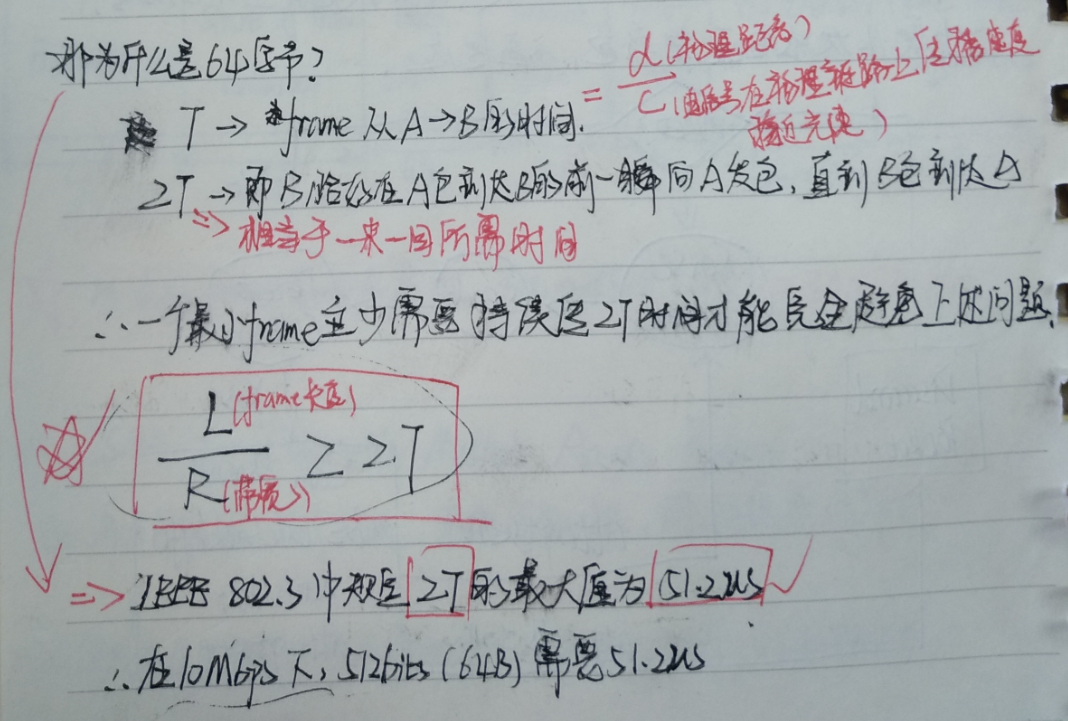 那为什么是64字节?
T → frame 从 A → B 的时间. = d(物理距离) / C(电信号在物理链路上传播速度接近光速)
2T → 即B恰好在A包到达B的前一瞬间向A发包, 直到B包到达A
=> 相当于一来一回所需时间
∴ 一个最小frame至少需要持续传2T时间才能完全避免上述问题.
L(frame长度) / R(带宽) ≥ 2T
=> IEEE 802.3 中规定 2T 的最大值为 51.2us
∴ 在10Mbps下, 512bits (64B) 需要51.2us